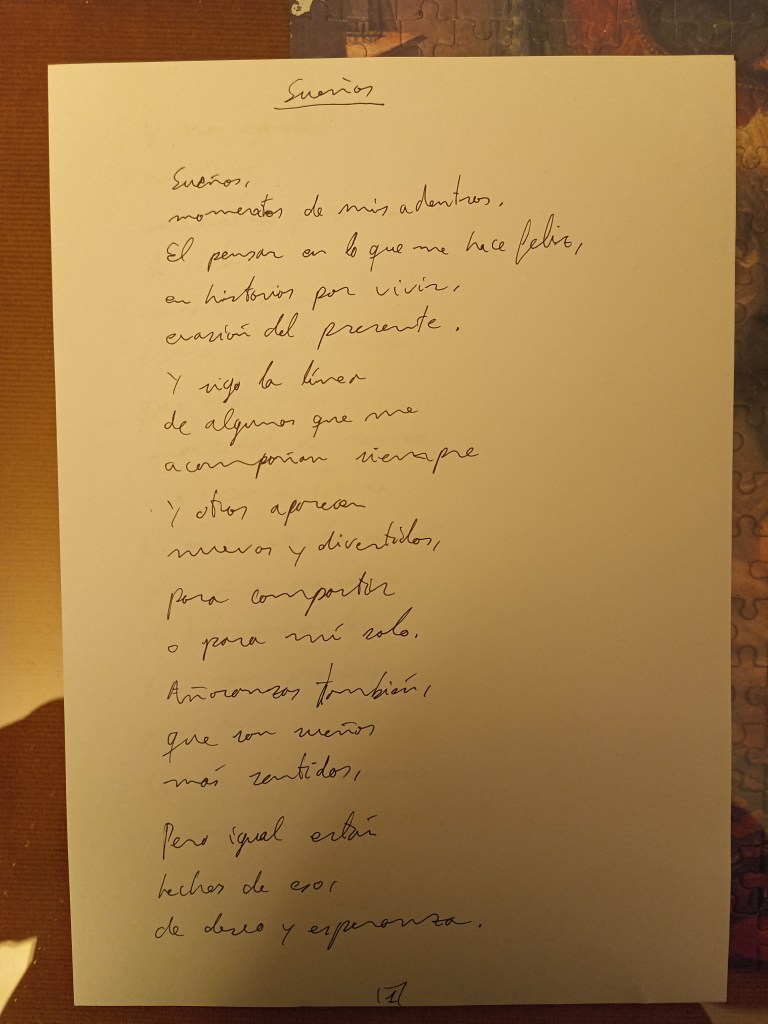 Sueños
Sueños,
momentos de mis adentros.
El pensar en lo que me hace feliz,
en historias por vivir,
evasión del presente.
Y sigo la línea
de algunos que me
acompañan siempre
Y otros aparecen
nuevos y divertidos,
para compartir
o para mí solo.
Añoranzas también,
que son sueños
más sentidos,
Pero igual están
hechos de eso,
de deseo y esperanza.